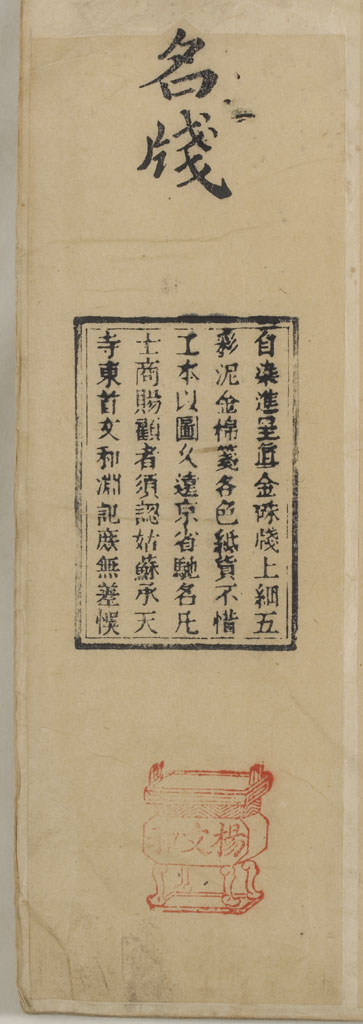 名牋
自染進呈真金硃牋上細五
彩泥金棉箋各色紙貨不惜
工本以圖久遠京省馳名凡
士商賜顧者須認姑蘇承天
寺東首文和淵記庶無差悞
楊文